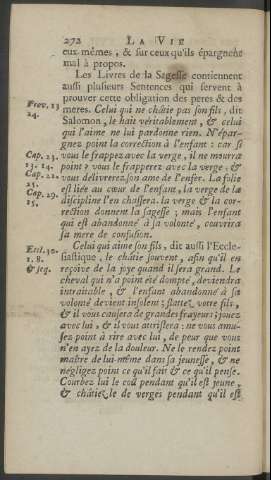 272 LA VIE
eux-mêmes, & sur ceux qu'ils épargnent
mal à propos.
Les Livres de la Sagesse contiennent
aussi plusieurs Sentences qui servent à
prouver cette obligation des peres & des
Prov. 13
24.
meres. Celui qui ne châtie pas son fils, dit
Salomon, le hait véritablement, & celui
qui l'aime ne lui pardonne rien. N'épar-
gnez point la correction à l'enfant: car si
Cap. 23.
13. 14.
Cap. 22.
15.
Cap. 29.
15.
vous le frappez avec la verge, il ne mourra
point: vous le frapperez avec la verge, &
vous délivrerez son ame de l'enfer. La folie
est liée au cœur de l'enfant, la verge de la
discipline l'en chassera. la verge & la cor-
rection donnent la sagesse; mais l'enfant
qui est abandonné à sa volonté, couvrira
sa mere de confusion.
Eccl. 30.
1. 8.
& seq.
Celui qui aime son fils, dit aussi l'Eccle-
siastique, le châtie souvent, afin qu'il en
reçoive de la joye quand il sera grand. Le
cheval qui n'a point été dompté, deviendra
intraitable, & l'enfant abandonné à sa
volonté devient insolent; flattez votre fils,
& il vous causera de grandes frayeurs; jouez
avec lui, & il vous attristera: ne vous amu-
sez point à rire avec lui, de peur que vous
n'en ayez de la douleur. Ne le rendez point
maître de lui-même dans sa jeunesse, & ne
négligez point ce qu'il fait & ce qu'il pense.
Courbez lui le col pendant qu'il est jeune,
& châtiez le de verges pendant qu'il est